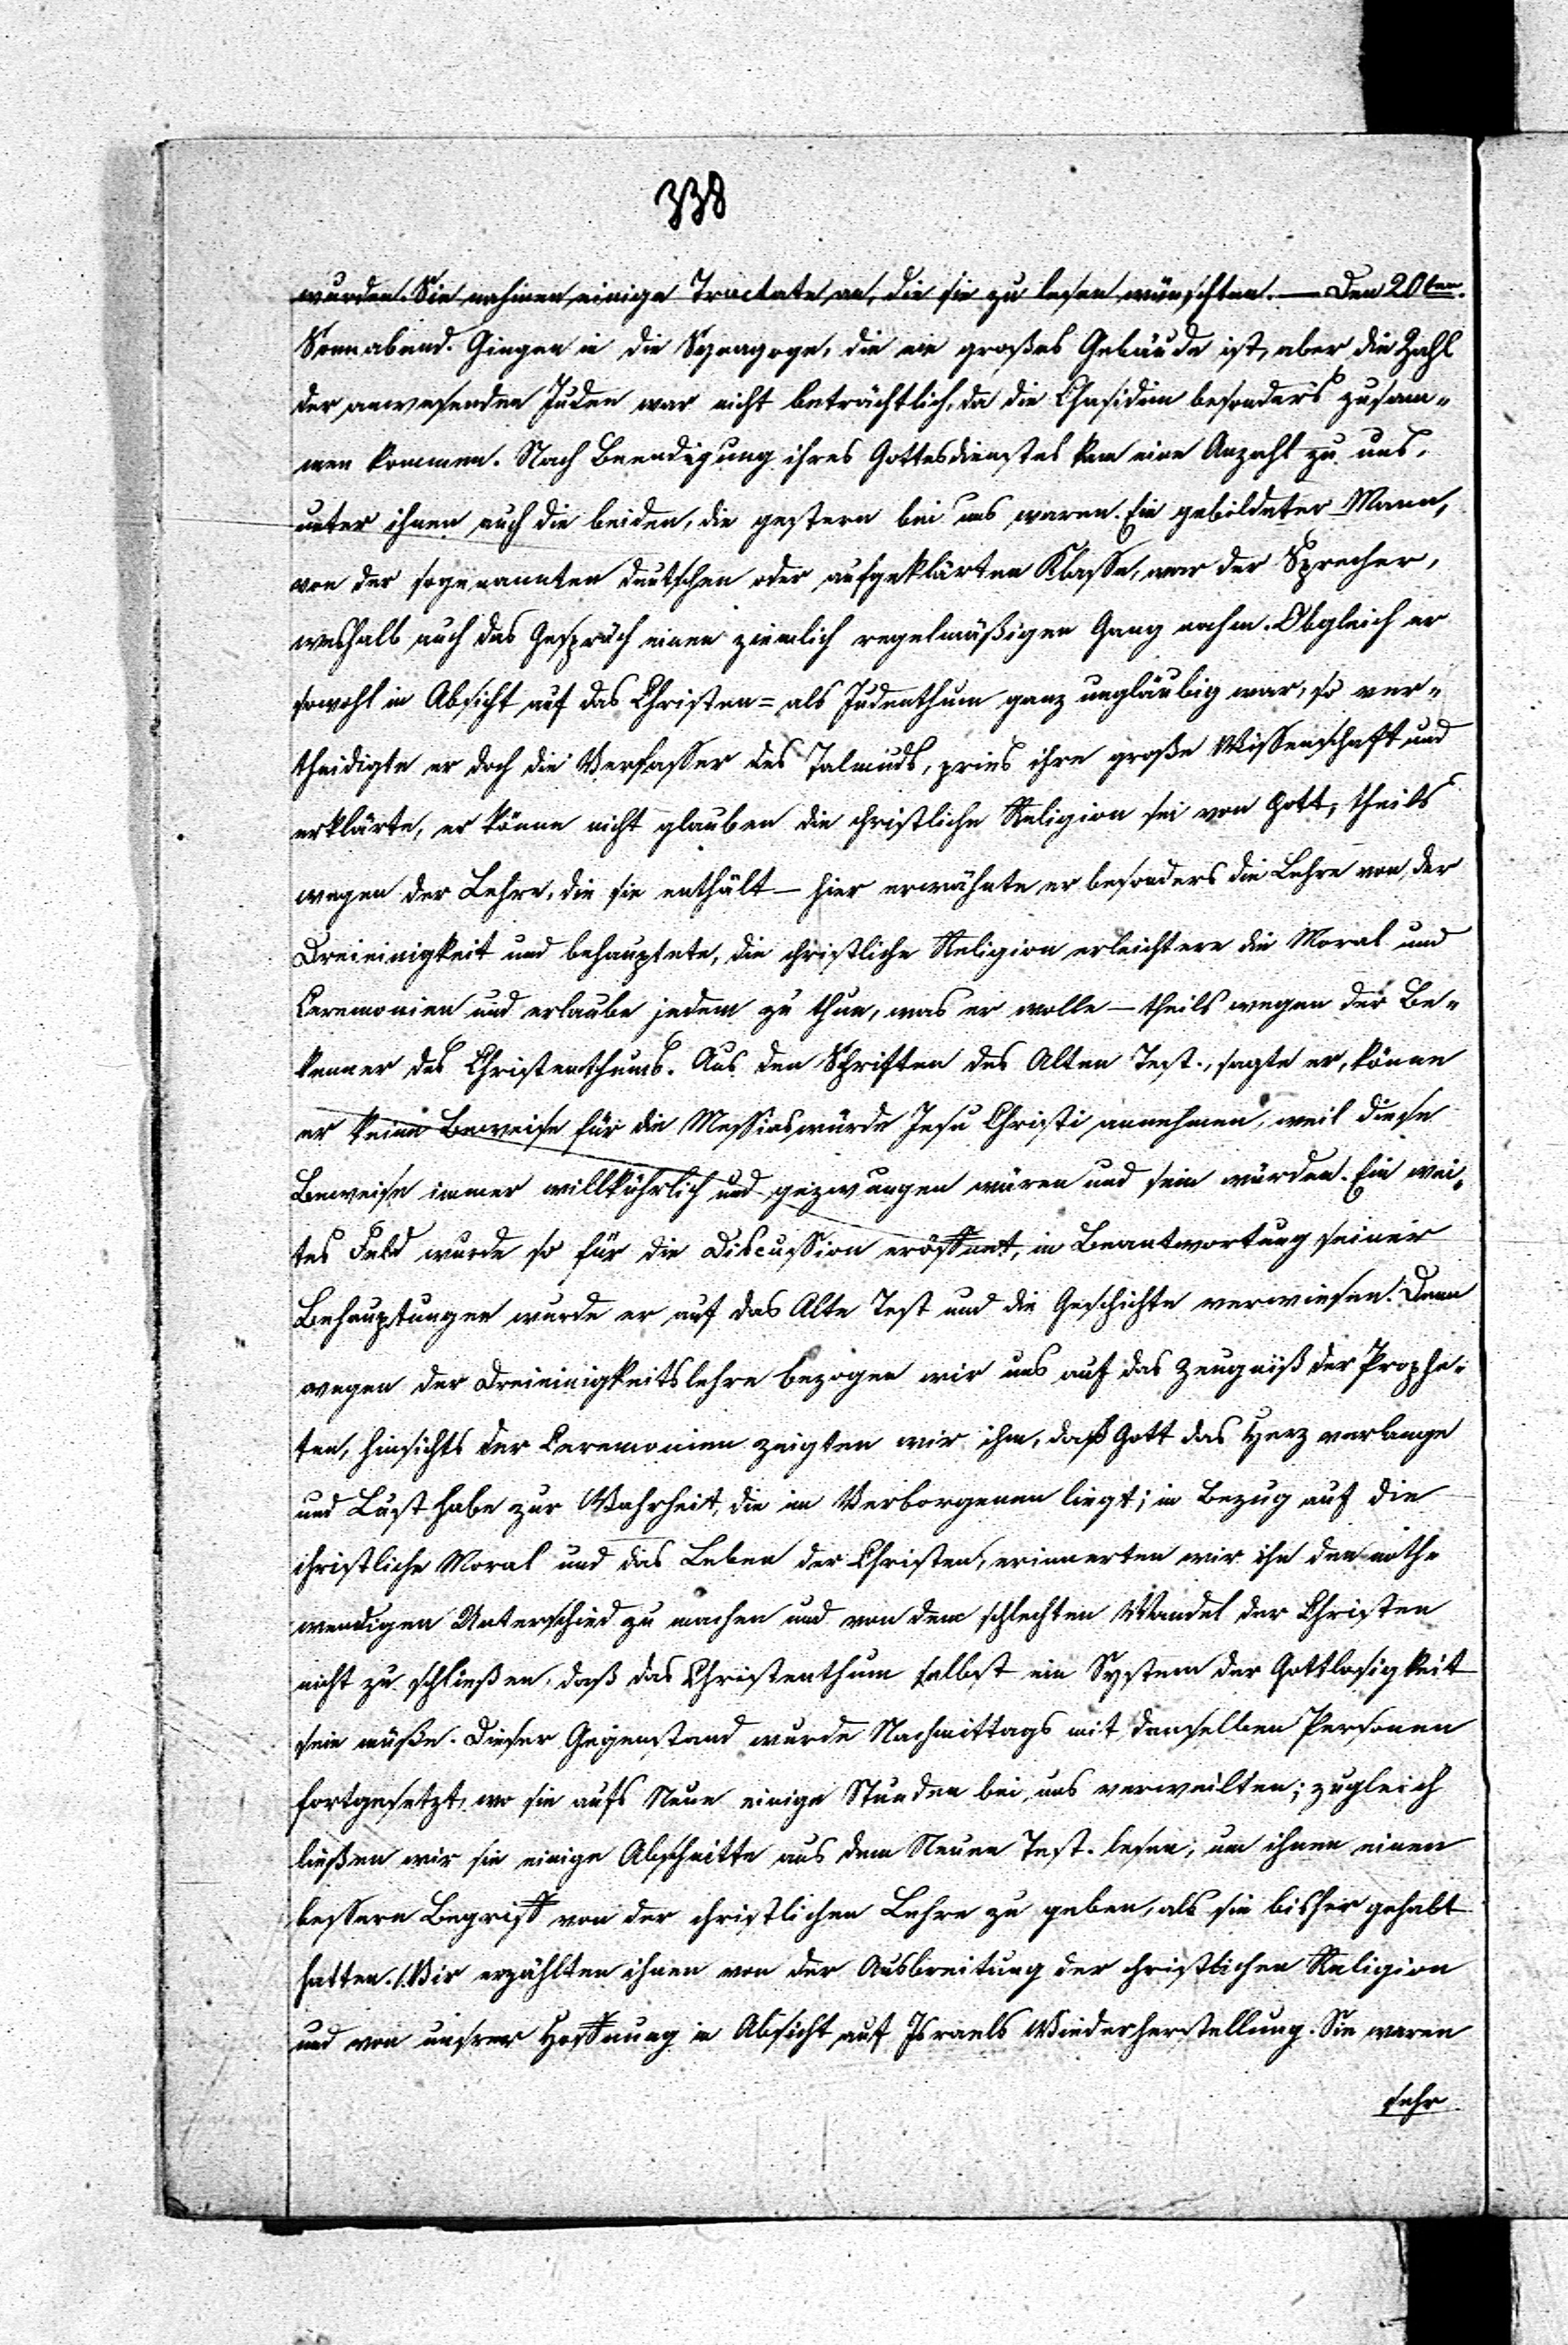 338
wurden. Sie nahmen einige Tractate an, die sie zu lesen wünschten. — Den 20ten.
Sonnabend. Gingen in die Synagoge, die ein großes Gebäude ist, aber die Zahl
der anwesenden Juden war nicht beträchtlich, da die Chasidim besonders zusam„
men kommen. Nach Beendigung ihres Gottesdienstes kam eine Anzahl zu uns,
unter ihnen auch die beiden, die gestern bei uns waren. Ein gebildeter Mann,
von der sogenannten deutschen oder aufgeklärten Klasse, war der Sprecher,
weshalb auch das Gespräch einen ziemlich regelmäßigen Gang nahm. Obgleich er
sowohl in Absicht auf das Christen= als Judenthum ganz ungläubig war, so ver„
theidigte er doch die Verfasser des Talmuds, pries ihre große Wissenschaft und
erklärte, er könne nicht glauben die christliche Religion sei von Gott, theils
wegen der Lehre, die sie enthält — hier erwähnte er besonders die Lehre von der
Dreieinigkeit und behauptete, die christliche Religion erleichtere die Moral und
Ceremonien und erlaube jedem zu thun, was er wolle — theils wegen der Be„
kenner des Christenthums. Aus den Schriften des Alten Test., sagte er, könne
er keine Beweise für die Messiaswürde Jesu Christi annehmen, weil diese
Beweise immer willkührlich und gezwungen wären und sein würden. Ein wei„
tes Feld wurde so für die Discussion eröffnet, in Beantwortung seiner
Behauptungen wurde er auf das Alte Test und die Geschichte verwiesen. Denn
wegen der Dreieinigkeitslehre bezogen wir uns auf das Zeugniß der Prophe„
ten, hinsichts der Ceremonien zeigten wir ihm, daß Gott das Herz verlange
und Lust habe zur Wahrheit, die im Verborgenen liegt; in Bezug auf die
christliche Moral und das Leben der Christen, erinnerten wir ihn den noth„
wendigen Unterschied zu machen und von dem schlechten Wandel der Christen
nicht zu schließen, daß das Christenthum selbst ein System der Gottlosigkeit
sein müße. Dieser Gegenstand wurde Nachmittags mit denselben Personen
fortgesetzt, wo sie aufs Neue einige Stunden bei uns verweilten; zugleich
ließen wir sie einige Abschnitte aus dem Neuen Test. lesen, um ihnen einen
bessern Begriff von der christlichen Lehre zu geben, als sie bisher gehabt
hatten. Wir erzählten ihnen von der Ausbreitung der christlichen Religion
und von unsrer Hoffnung in Absicht auf Israels Wiederherstellung. Sie waren
sehr